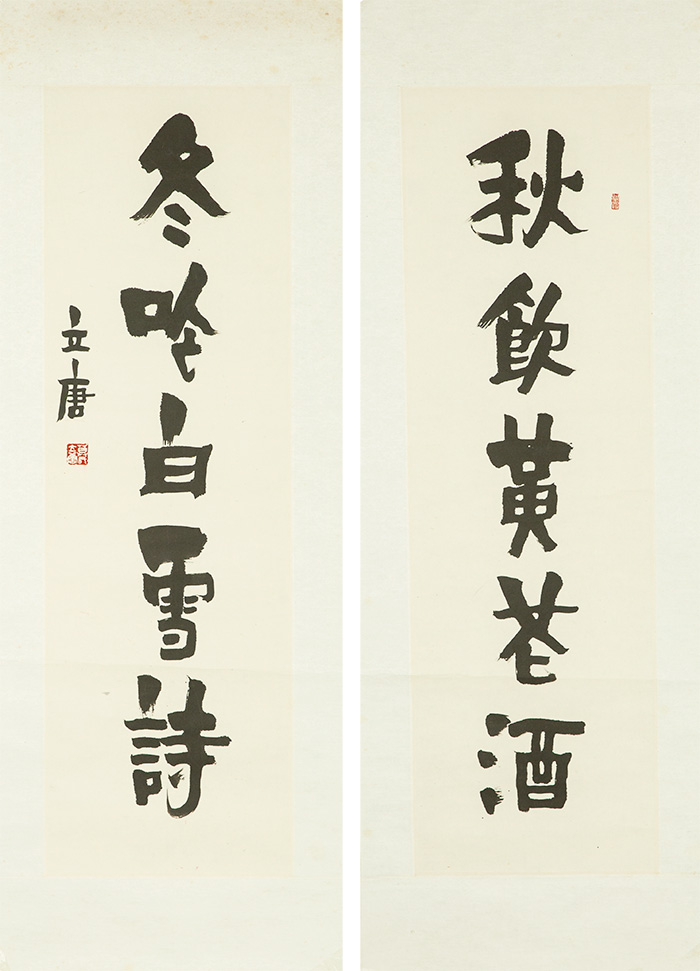 秋飲黃花酒
冬吟白雪詩
立唐